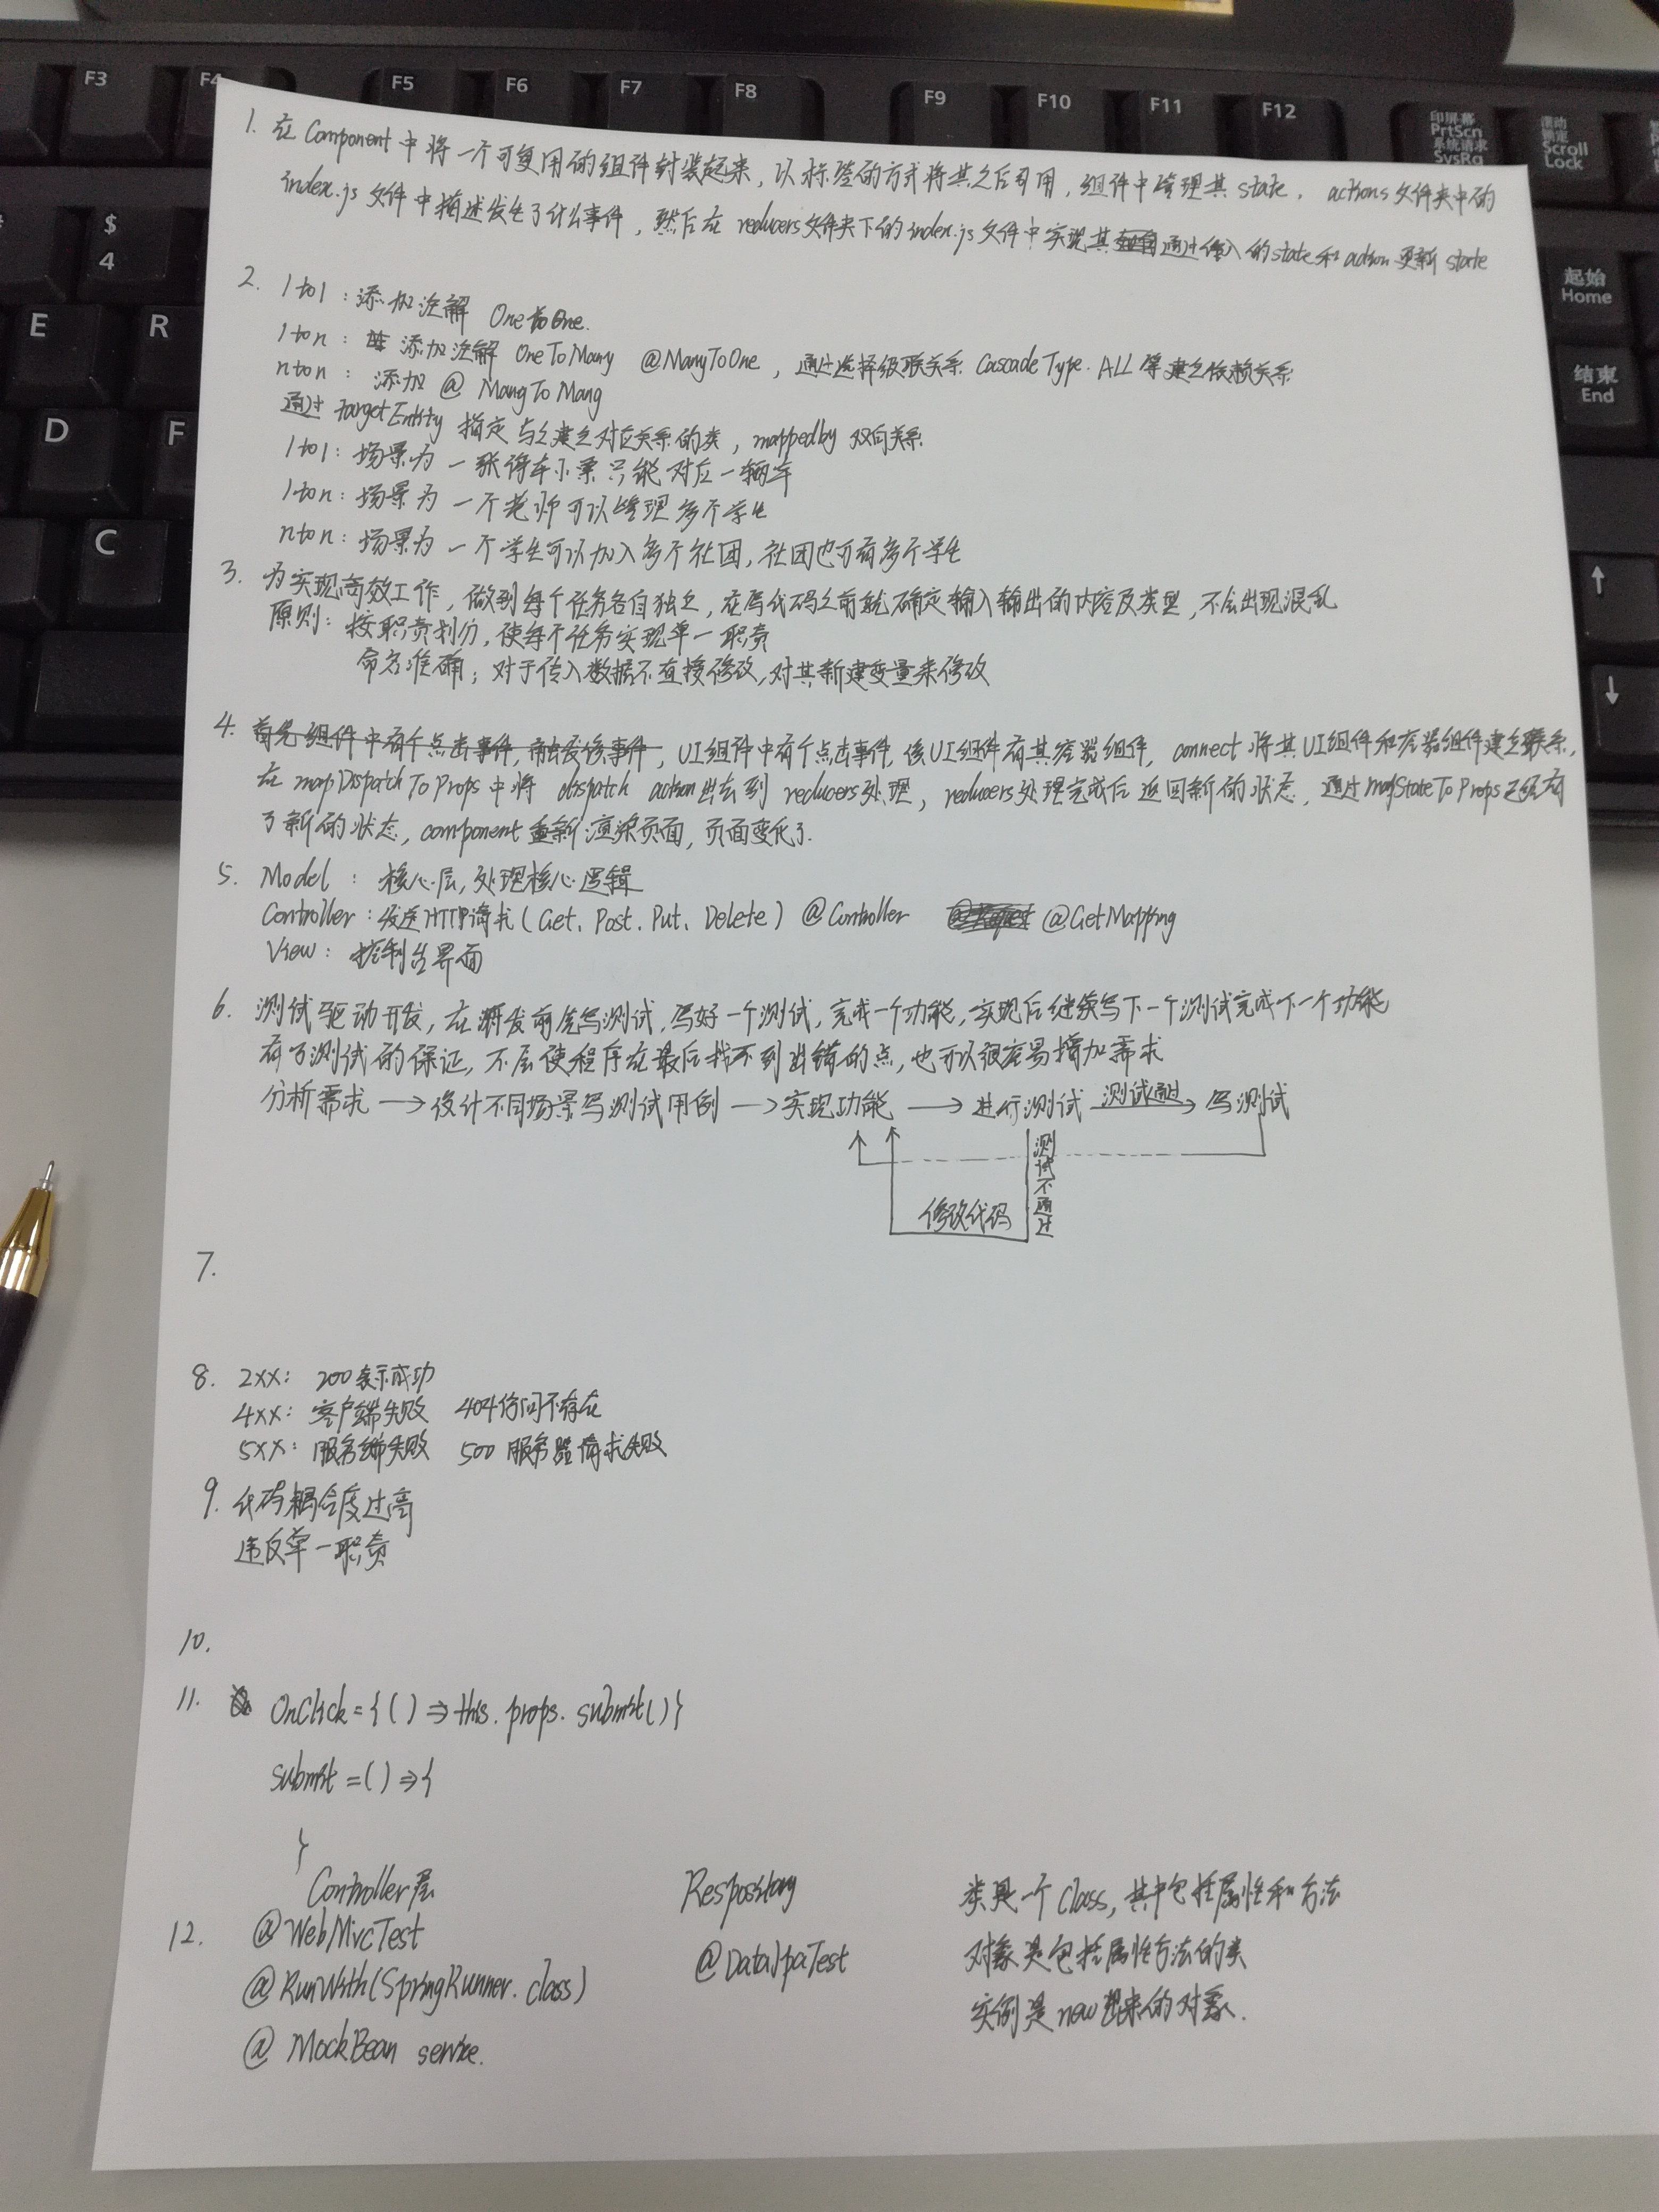 F3 F4 F5 F6 F7 F8 F9 F10 F11 F12
印屏幕 PrtScn 系统请求 SysRq
滚动 锁定 Scroll Lock
$ 4
E R
D F
C
起始 Home
结束 End
↑
↓
1. 在 Component 中将一个可复用的组件封装起来, 以标签的方式将其之后引用, 组件中管理其 state. actions文件夹中的
index.js 文件中描述发生了什么事件, 然后在 reducers文件夹下的 index.js 文件中实现其通过传入的state和action更新 state
2. 1to1 : 添加注解 OneToOne.
1ton : 添加注解 OneToMany @ManyToOne, 通过选择级联关系 CascadeType.ALL 等建立依赖关系
nton : 添加 @ManyToMany
通过 targetEntity 指定与之建立对应关系的类, mappedby 双向关系
1to1: 场景为 一张停车小票只能对应一辆车
1ton: 场景为 一个老师可以管理多个学生
nton: 场景为 一个学生可以加入多个社团, 社团也可有多个学生
3. 为实现高效工作, 做到每个任务各自独立, 在写代码之前就确定输入输出的内容及类型, 不会出现混乱
原则: 按职责划分, 使每个任务实现单一职责
命名准确; 对于传入数据不直接修改, 对其新建变量来修改
4. 首先组件中有个点击事件, 触发该事件, UI组件中有个点击事件, 该UI组件有其容器组件, connect 将其UI组件和容器组件建立联系,
在 mapDispatchToProps 中将 dispatch action出去到 reducers处理, reducers处理完成后返回新的状态, 通过mapStateToProps已经有
了新的状态, component 重新渲染页面, 页面变化了.
5. Model : 核心层, 处理核心逻辑
Controller : 发送HTTP请求 (Get. Post. Put. Delete) @Controller @GetMapping
View : 控制台界面
6. 测试驱动开发, 在开发前先写测试, 写好一个测试, 完成一个功能, 实现后继续写下一个测试完成下一个功能
有了测试的保证, 不会使程序在最后找不到出错的点, 也可以很容易增加需求
分析需求 → 设计不同场景写测试用例 → 实现功能 → 进行测试 测试通过 → 写测试
测试不通过
修改代码
7.
8. 2xx: 200 表示成功
4xx: 客户端失败 404访问不存在
5xx: 服务端失败 500 服务器请求失败
9. 代码耦合度过高
违反单一职责
10.
11. OnClick={()⇒this.props.submit()}
submit=()⇒{
}
Controller层 Respository 类是一个Class, 其中包括属性和方法
12. @WebMvcTest @DataJpaTest 对象是包括属性方法的类
@RunWith(SpringRunner.class) 实例是new出来的对象.
@MockBean service.